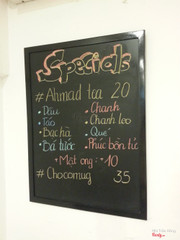 Specials
# Ahmad tea 20
• Dâu • Chanh
• Táo • Chanh leo
• Bạc hà • Quế
• Bá tước • Phúc bồn tử
+ Mật ong : 10
# Chocomug 35